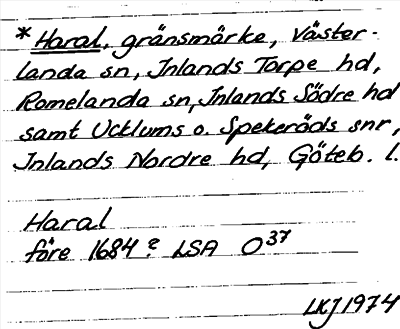 *Haral, gränsmärke, Väster-
landa sn, Inlands Torpe hd,
Romelanda sn, Inlands Södre hd
samt Ucklums o. Spekeröds snr,
Inlands Nordre hd, Göteb. l.
Haral
före 1684? LSA O37
LKJ 1974